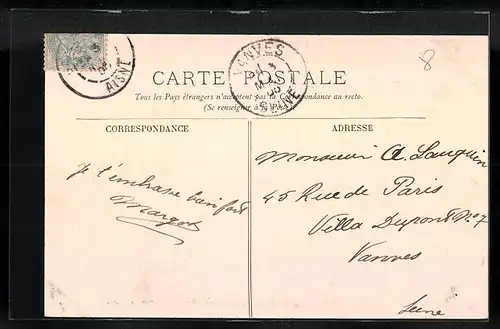 8
AISNE
VANVES
SEINE
CARTE POSTALE
Tous les Pays étrangers n'acceptent pas la Correspondance au recto.
(Se renseigner à la Poste)
CORRESPONDANCE
ADRESSE
je t'embrasse bien fort
Margot
Monsieur A.
45 Rue de Paris
Villa Dupont No 7
Vanves
Seine